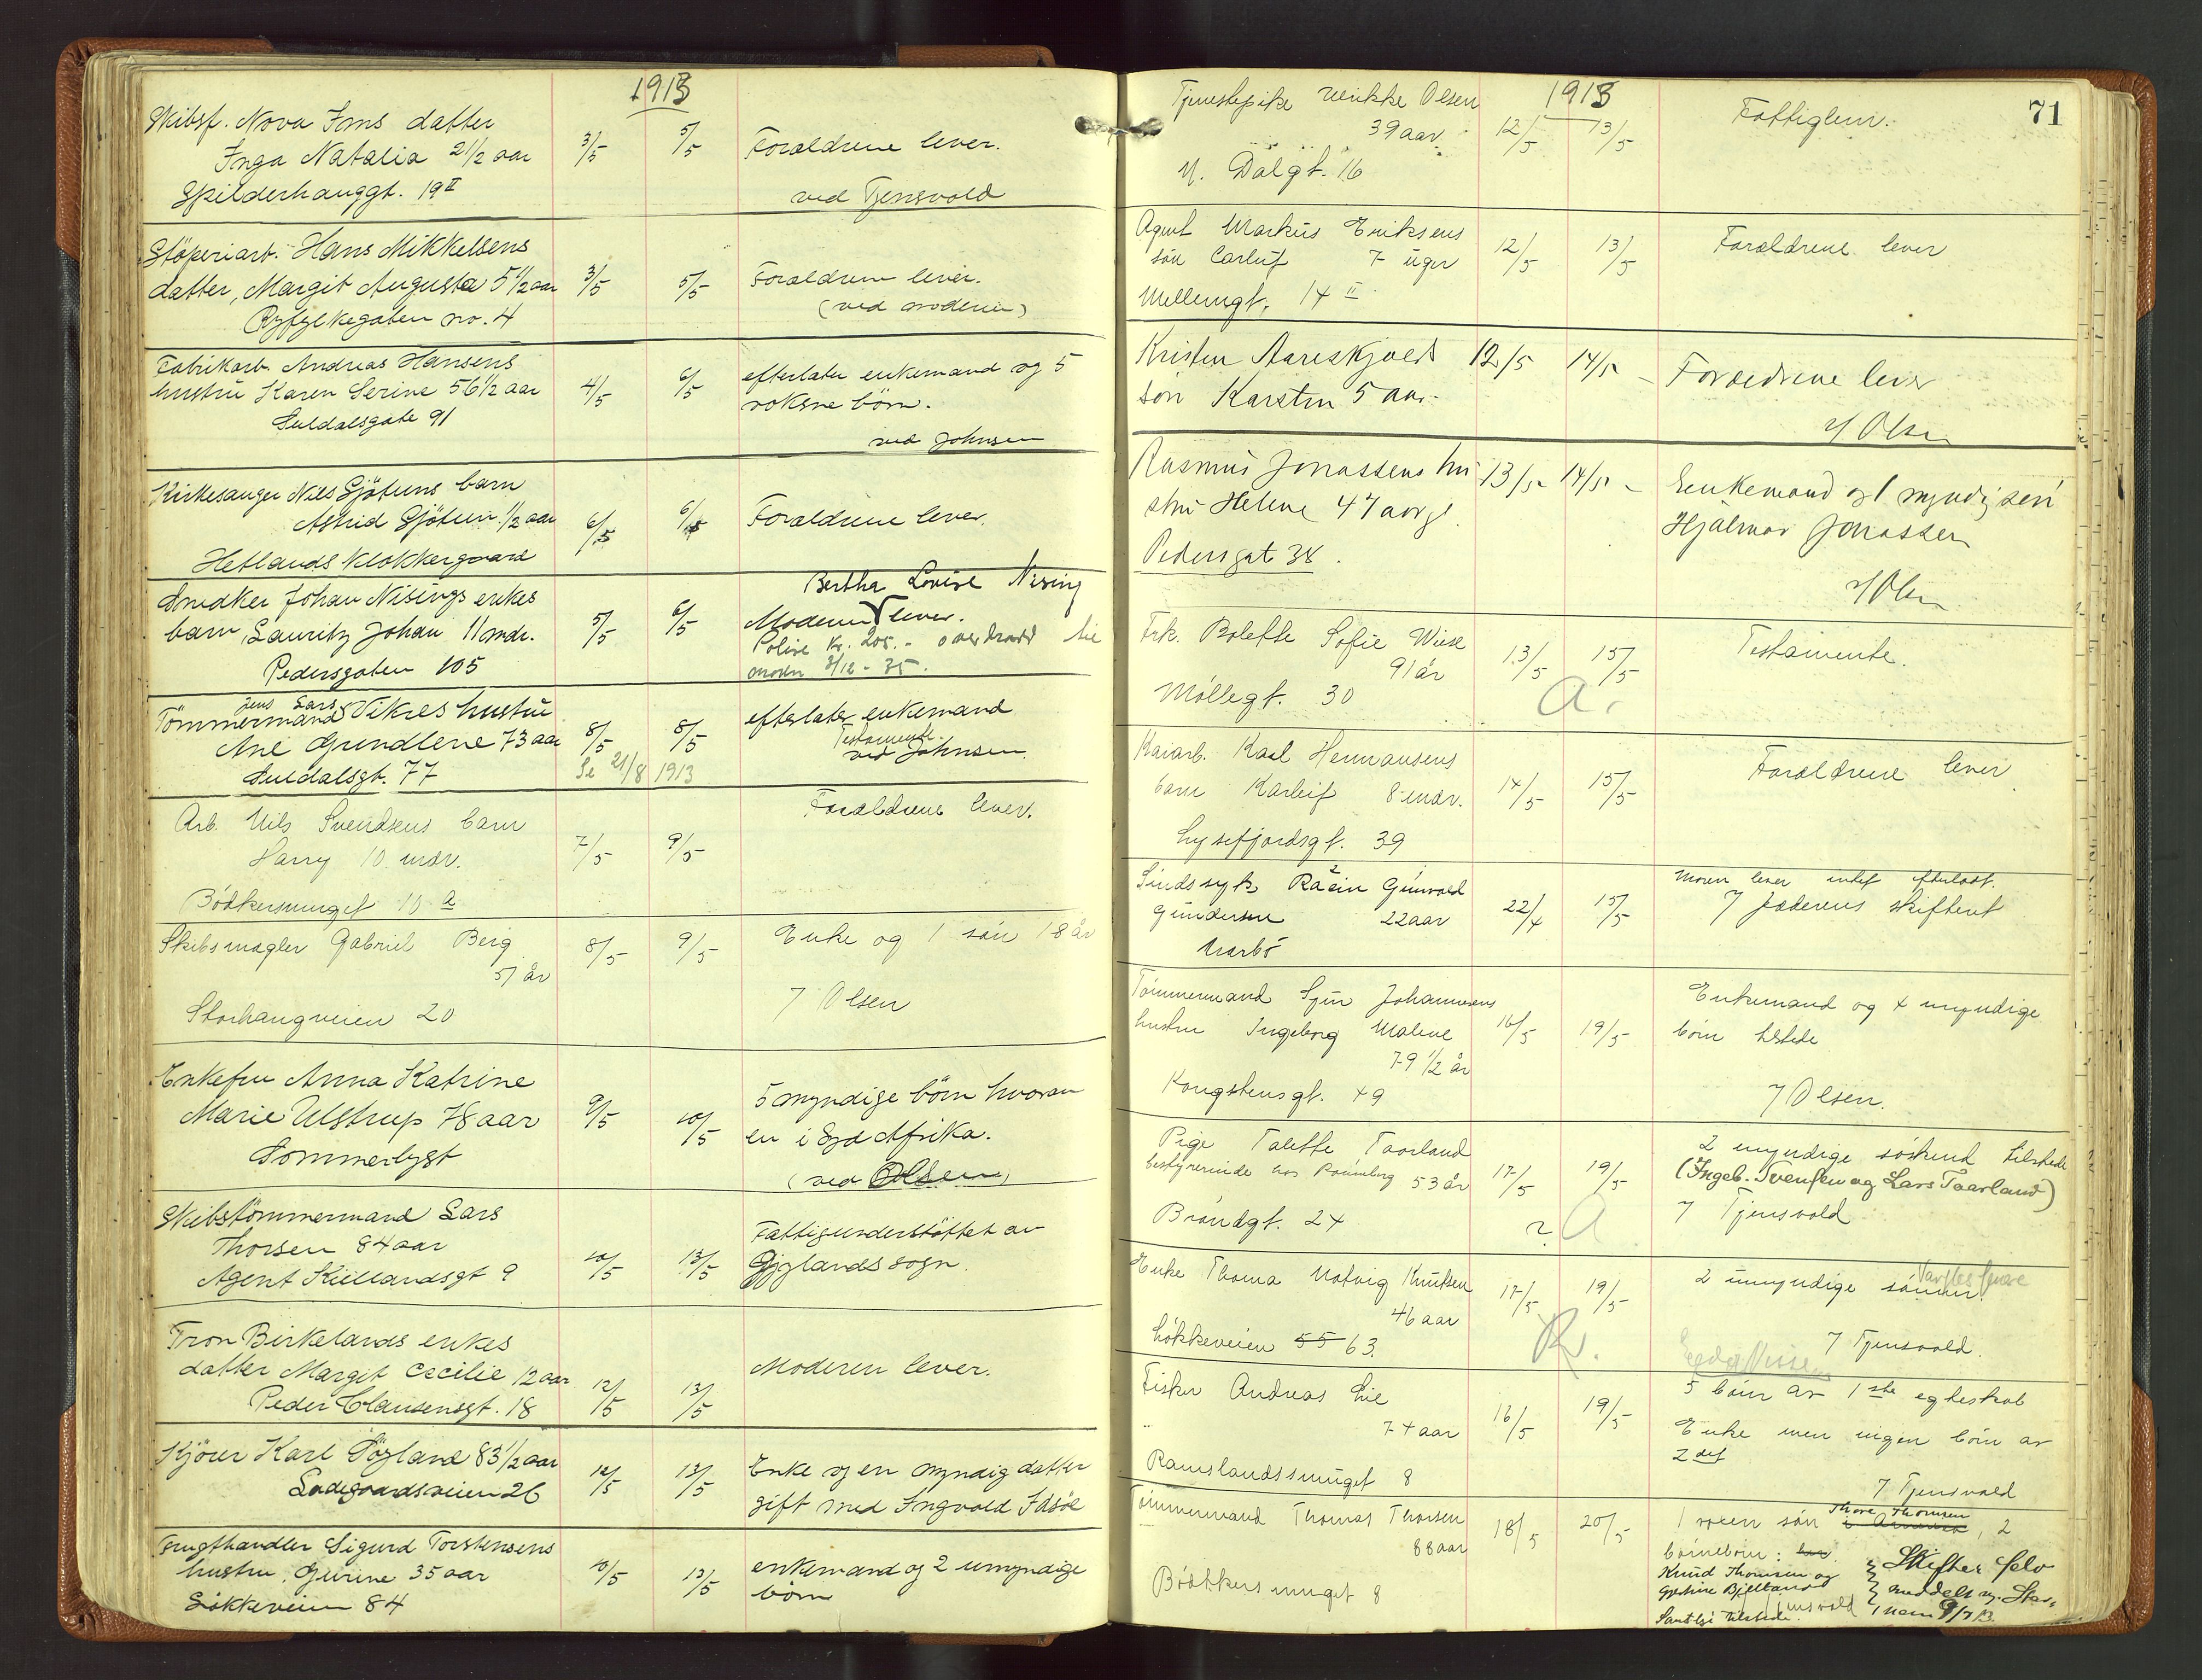 1913
Skibsf. Nova Ims datter
Inga Natalia 2 1/2 aar
3/5 5/5 Forældrene lever.
Spilderhauggt. 19 II
ved Tjensvold
Støperiarb. Hans Mikkelsens
datter, Margit Augusta 5 1/2 aar
3/5 5/5 Forældrene lever.
(ved moderen)
Ryfylkegaten no. 4
Fabrikarb. Andreas Hansens
hustru Karen Serine 56 1/2 aar
Suldalsgate 91
4/5 6/5 efterlater enkemand og 5
voksne børn.
ved Johnsen
Kirkesanger Nils Gjøtuns barn
Astrid Gjøtun 1/2 aar
Hetlands Klokkergaard
6/5 6/5 Forældrene lever.
Snedker Johan Nisings enkes
barn, Lauritz Johan 11 mdr.
Pedersgaten 105
5/5 6/5 Bertha Lovise Nising
Moderen lever.
Polise Kr. 205.- overdradd til
moder 3/12 - 35.
Jens Lars
Tømmermand Vikres hustru
Ane Gundlene 73 aar
Suldalsgt. 77
8/5 8/5 efterlater enkemand
Testamente.
ved Johnsen.
Se 21/8 1913
Arb. Nils Svendsens barn
Harry 10 mdr.
Bødkersmuget 10 a
7/5 9/5 Forældrene lever.
Skibsmægler Gabriel Berg
51 år
Storhaugveien 20
8/5 9/5 Enke og 1 søn 18 år
/ Olsen
Enkefru Anna Katrine
Marie Ulstrup 78 aar
Sommerlyst
9/5 10/5 5 myndige børn hvorav
en i Syd Afrika.
(ved Olsen)
Skibstømmermand Lars
Thorsen 84 aar
Agent Kiellandsgt 9
10/5 13/5 Fattigunderstøttet av
Gjylands sogn.
Tron Birkelands enkes
datter Margit Cecilie 12 aar
Peder Clausensgt. 18
12/5 13/5 Moderen lever.
Kjører Karl Søyland 83 1/2 aar
Ladegaardsveien 26
12/5 13/5 Enke og en myndig datter
gift med Ingvald Idsøe
Frugthandler Sigurd Torstensens
hustru, Gurine 35 aar
Løkkeveien 84
10/5 13/5 enkemand og 2 umyndige
børn
71
1913
Tjenestepike Ulrikke Olsen
39 aar
N. Dalgt. 16
12/5 13/5 Fattiglem.
Agent Markus Eriksens
søn Carluf 7 uger
Mellemgt. 14 II
12/5 13/5 Forældrene lever
Kristen Aareskjolds
søn Karsten 5 aar
12/5 14/5 Foreldrene lever
v/ Olsen
Rasmus Jonassens hu
stru Helene 47 aar gl.
Pedersgat 38.
13/5 14/5 Enkemand og 1 myndig søn
Hjalmar Jonassen
v/ Olsen
Frk. Bolette Sofie Wiese
91 år
Møllegt. 30
13/5 15/5 Testamente.
a.
Kaiarb. Karl Hermansens
barn Karleif 8 mdr.
Lysefjordsgt. 39
14/5 15/5 Forældrene lever
Sindssyk Racin Gunvald
Gundersen 22 aar
Varbø
22/4 15/5 Moren lever intet efterladt.
/ Jæderens skifteret
Tømmermand Sjur Johannesens
hustru Ingeborg Malene
79 1/2 år
Kongstensgt. 49
16/5 19/5 Enkemand og 4 myndige
børn tilstede
/ Olsen.
Pige Talette Taarland
bestyrerinde hos Rønneberg 53 år
Brøndgt. 24
17/5 19/5 2 myndige søskend tilstede
(Ingeb. Svensen og Lars Taarland)
/ Tjensvold
a
Enke Thoma Hatvig Knutsen
46 aar
Løkkeveien 55 63.
17/5 19/5 2 umyndige sønner.
/ Tjensvold.
R.
Fisker Andreas Lie
74 aar
Ramslandssmuget 8
16/5 19/5 5 børn av 1ste egteskab
Enke men ingen børn av
2det
/ Tjensvold
Tømmermand Thomas Thorsen
88 aar
Bødkersmuget 8
18/5 20/5 1 voxen søn Thore Thomsen, 2
børnebørn:
Knud Thomsen og
Gjertine Bjelland
Samtlige tilstede.
Tjensvold
Skifter selv